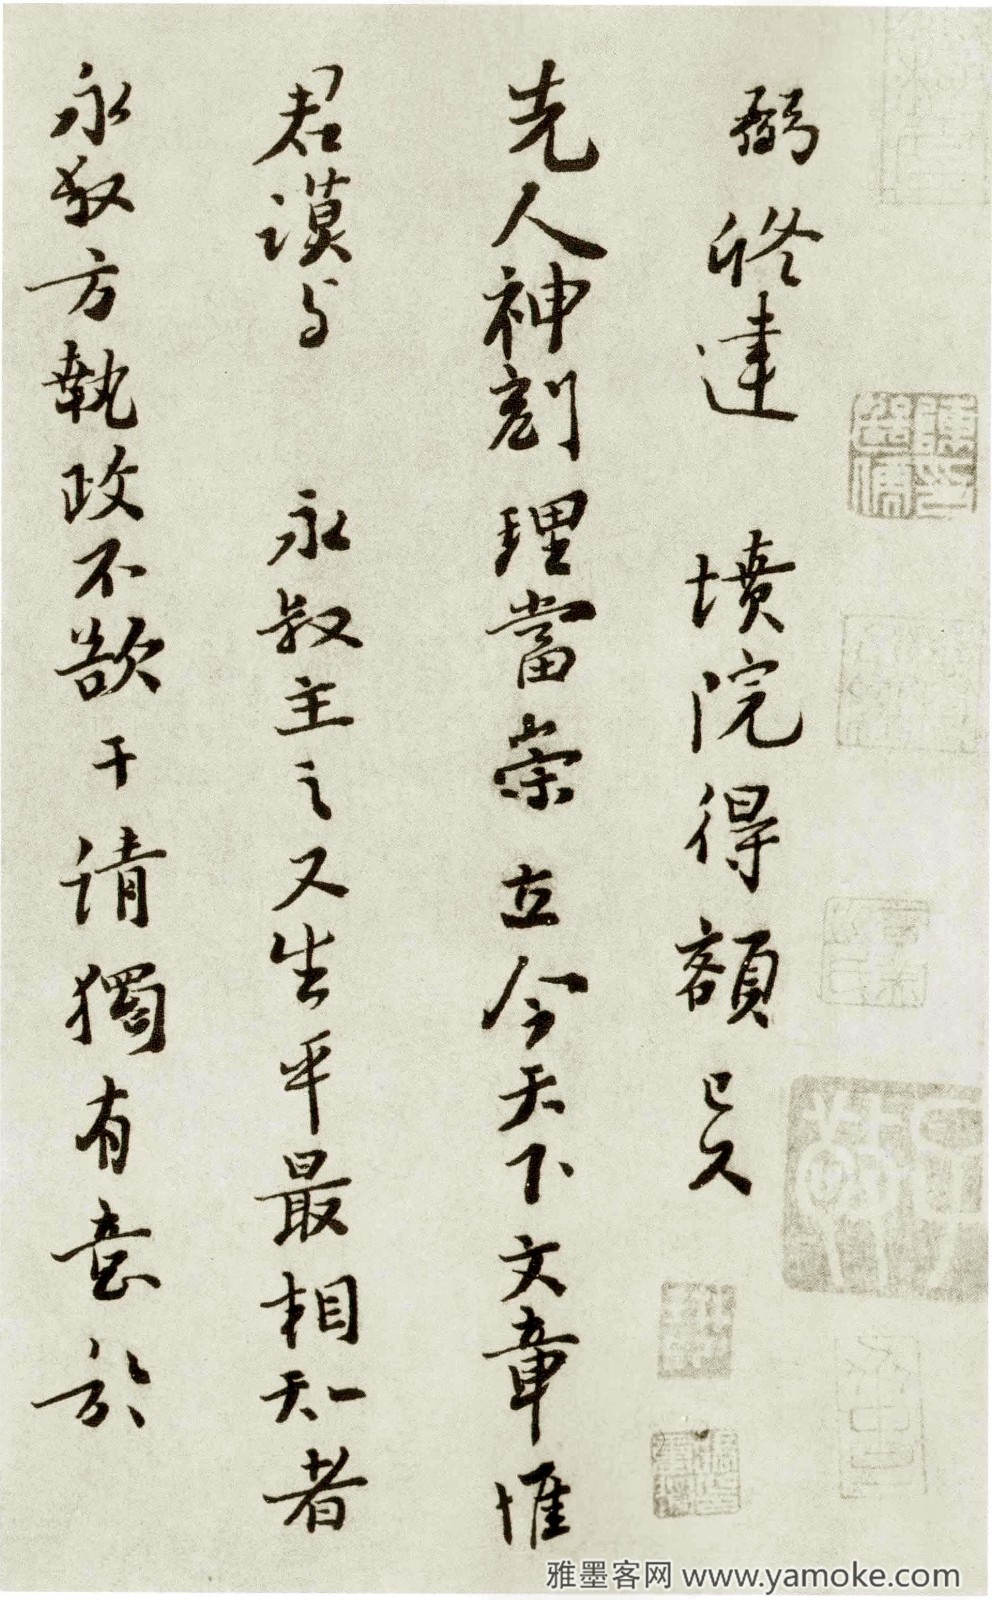 弼修建 墳院得額已久
先人神刻理當崇立今天下文章惟
君謨与 永叔主之又生平最相知者
永叔方執政不欲干请獨有意於
雅墨客网 www.yamoke.com